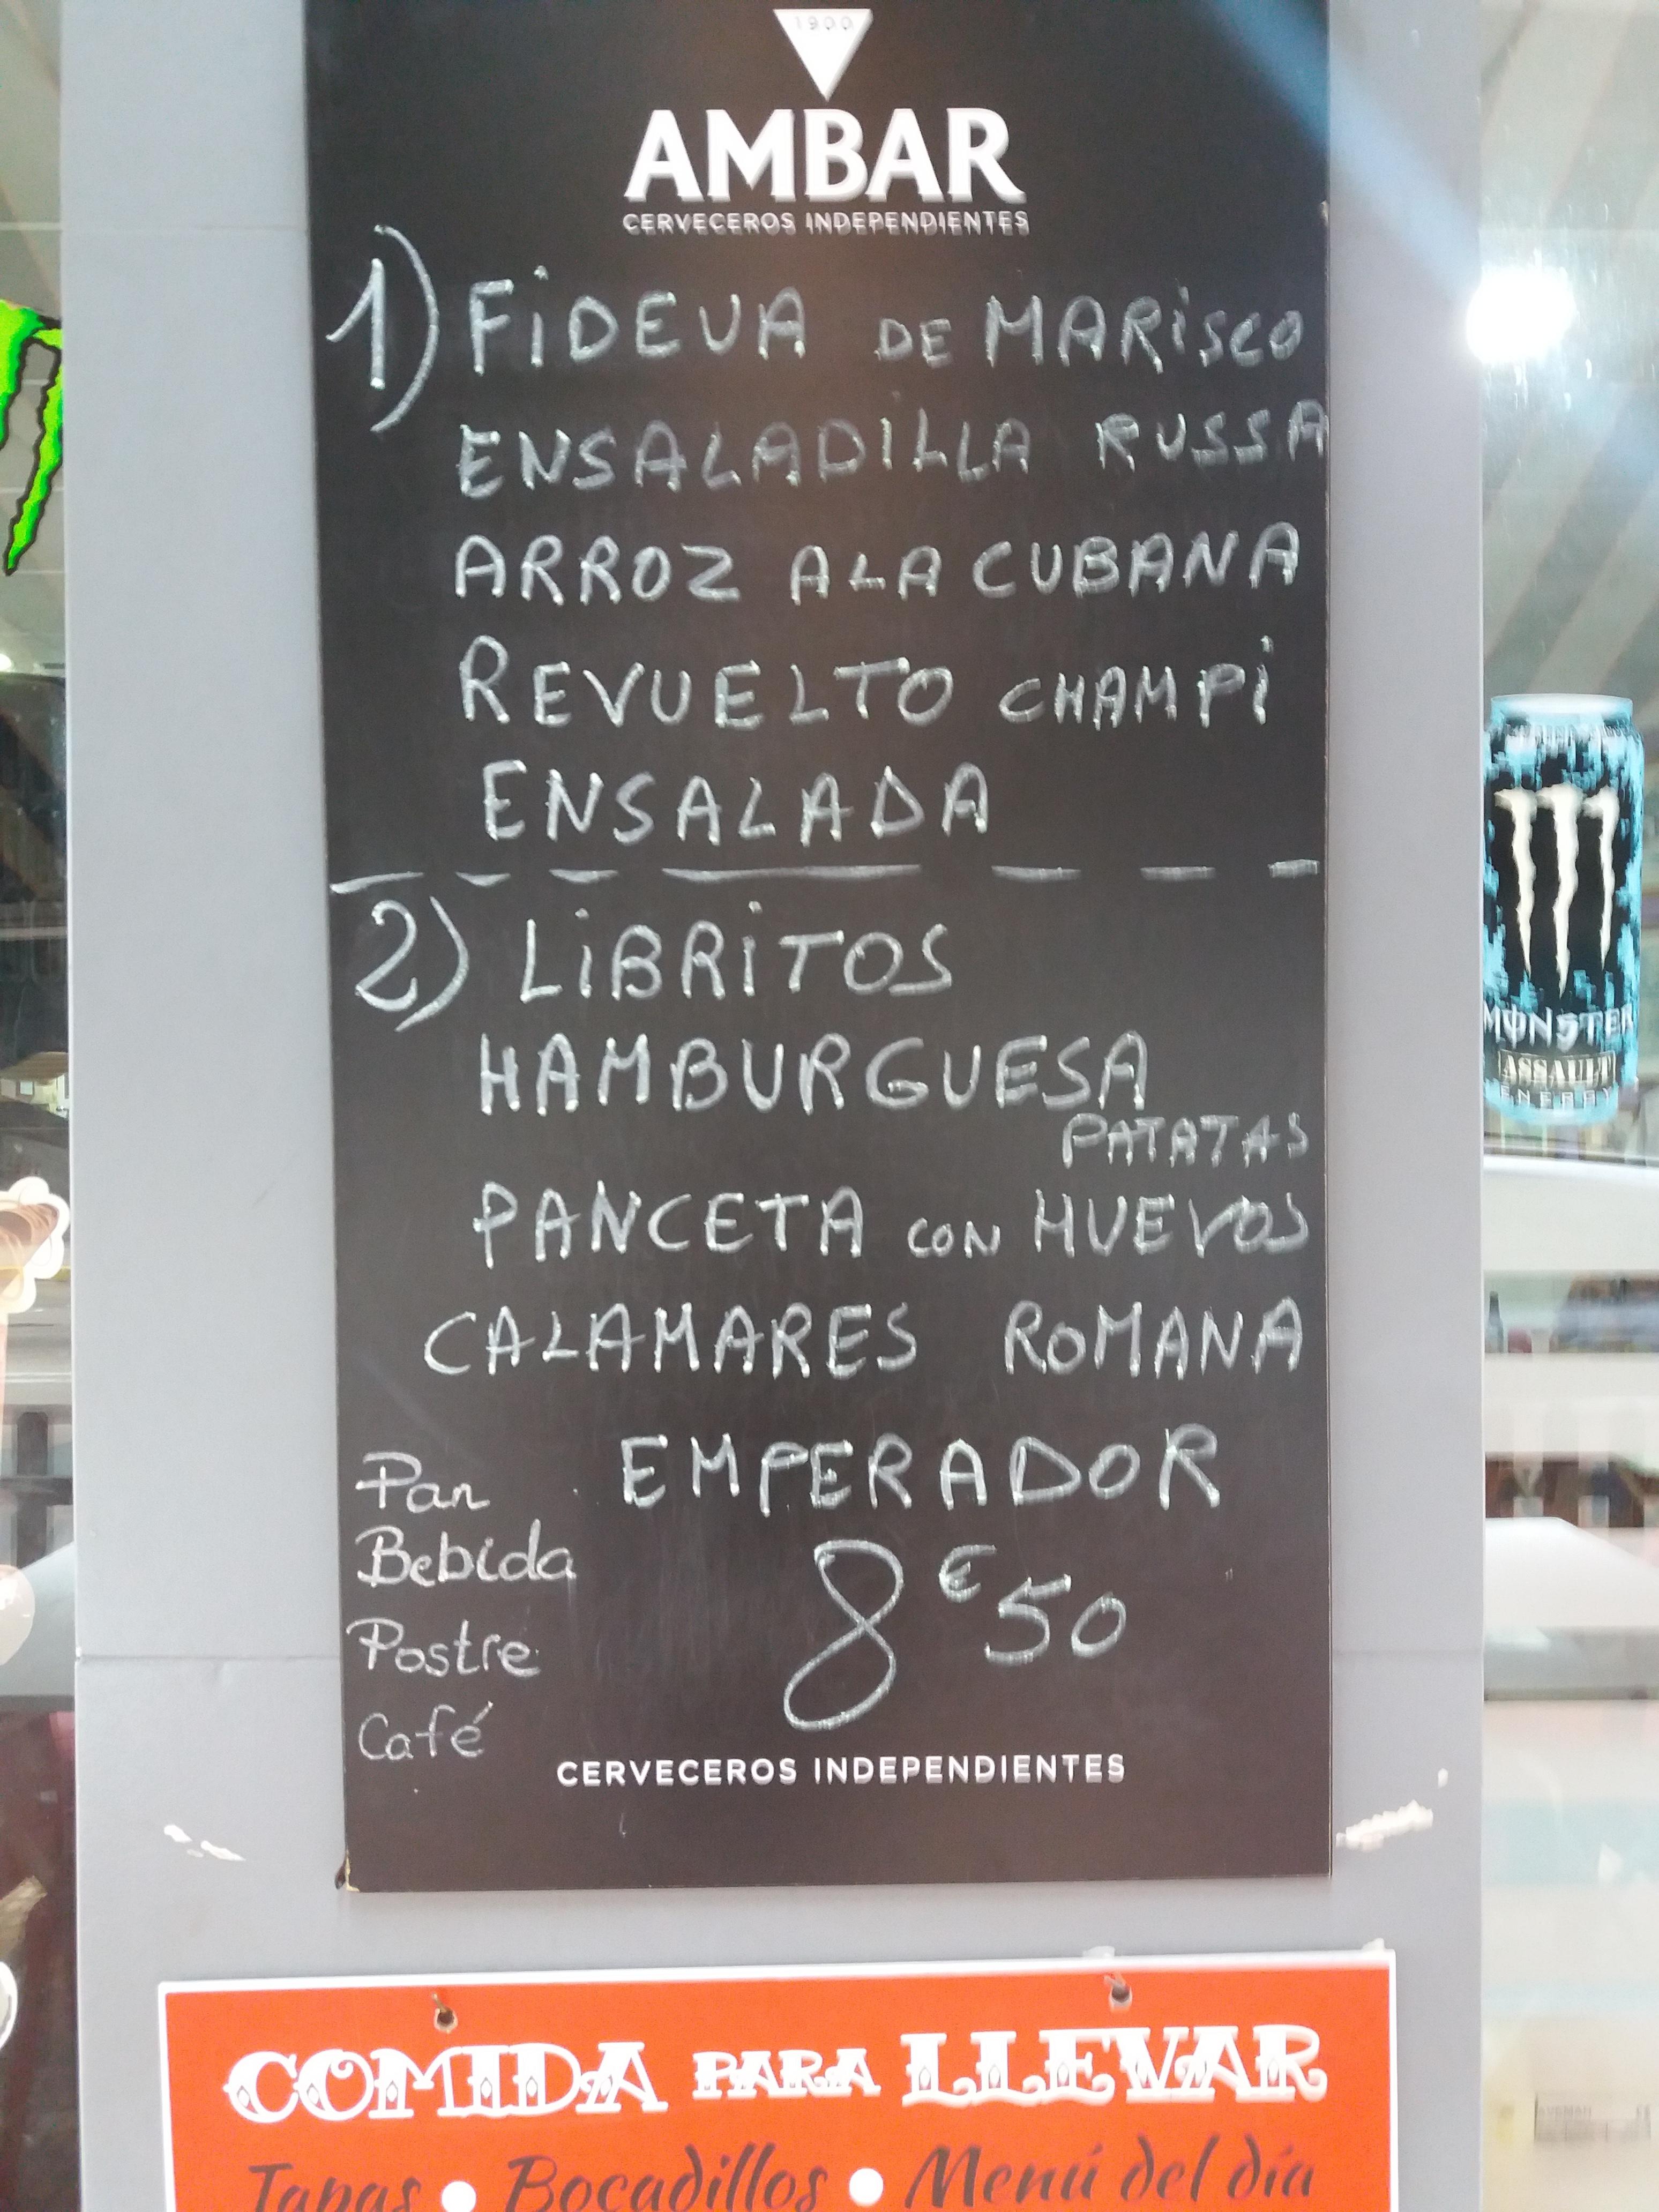 1900
AMBAR
CERVECEROS INDEPENDIENTES
1) FIDEUA DE MARISCO
ENSALADILLA RUSSA
ARROZ A LA CUBANA
REVUELTO CHAMPI
ENSALADA
2) LIBRITOS
HAMBURGUESA
PATATAS
PANCETA CON HUEVOS
CALAMARES ROMANA
EMPERADOR
Pan
Bebida
Postre
Café
8€50
CERVECEROS INDEPENDIENTES
MONSTER
ASSAULT
ENERGY
COMIDA PARA LLEVAR
Tapas • Bocadillos • Menú del día